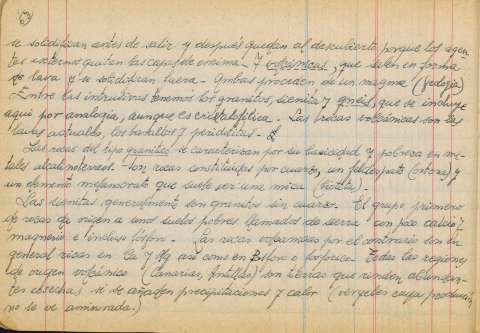 3
se solidifican antes de salir y después quedan al descubierto porque los agen-
tes externos quitan las capas de encima - y volcánicas, que salen en forma
de lava y se solidifican fuera. Ambas proceden de un magma (Geología)
Entre las intrusivas tenemos los granitos, sienita y gneis, que se incluye
aquí por analogía, aunque es cristalofílica. Las rocas volcánicas son las
lavas actuales, los basaltos y peridotitas.
Las rocas del tipo granitico se caracterizan por su basicidad y pobreza en me-
tales alcalinoterreos. Son rocas constituidas por cuarzo, un feldespato (ortosa) y
un elemento melanocrato que suele ser una mica (biotita).
Las sienitas generalmente son granitos sin cuarzo. El grupo primero
de rocas da origen a unos suelos pobres llamados de sierra con poco calcio y
magnesio e incluso fósforo. Las rocas volcánicas por el contrario son en
general ricas en Ca y Mg así como en fósforo. Todas las regiones
de origen volcánico (Canarias, Antillas) son tierras que rinden abundan-
tes cosechas si se añaden precipitaciones y calor (vergeles cuya producción
no se ve aminorada.)